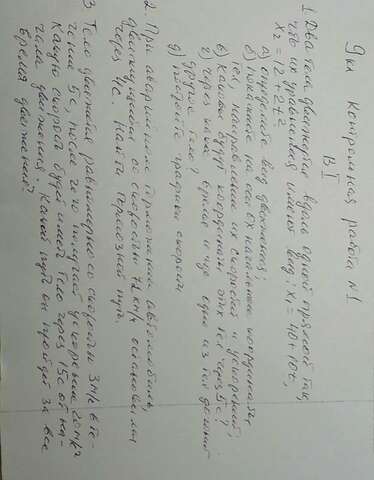 9кл контрольная работа №1
В I
1. Два тела движутся вдоль одной прямой так,
что их уравнения имеют вид: x₁ = 40 + 10t,
x₂ = 12 + 2t²
а) определите вид движения;
б) покажите на оси ox начальные координаты
тел, направления их скоростей и ускорений;
в) каковы будут координаты этих тел через 5с?
г) через какое время и где одно из тел догонит
другое тело?
д) постройте графики скорости
2. При аварийном торможении автомобиль,
движущийся со скоростью 72 км/ч остановился
через 4с. Найти тормозной путь.
3 Тело движется равномерно со скоростью 3м/с в те-
чение 5с, после чего получает ускорение
Какую скорость будет иметь тело через 15с от на-
чала движения? Какой путь он пройдет за все
время движения?